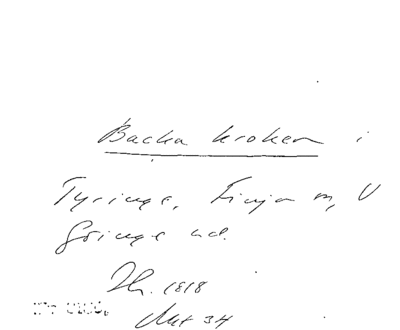 Backa kroken i
Tyringe, Finja m, V
Göinge hd.
1818
Akt 34